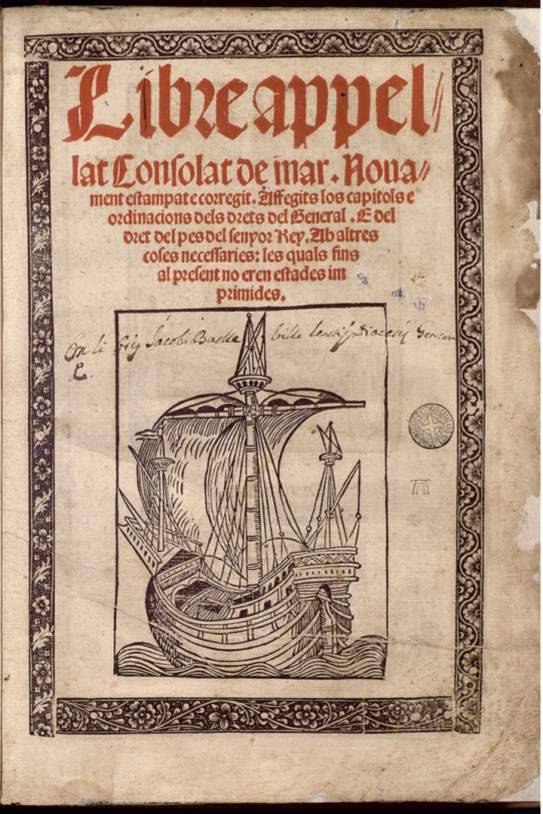 Libre appel//
lat Consolat de mar. Noua//
ment estampat e corregit. Affegits los capitols e
ordinacions dels drets del General. E del
dret del pes del senyor Rey. Ab altres
coses necessaries: les quals fins
al present no eren estades im
primides.
Jacobi